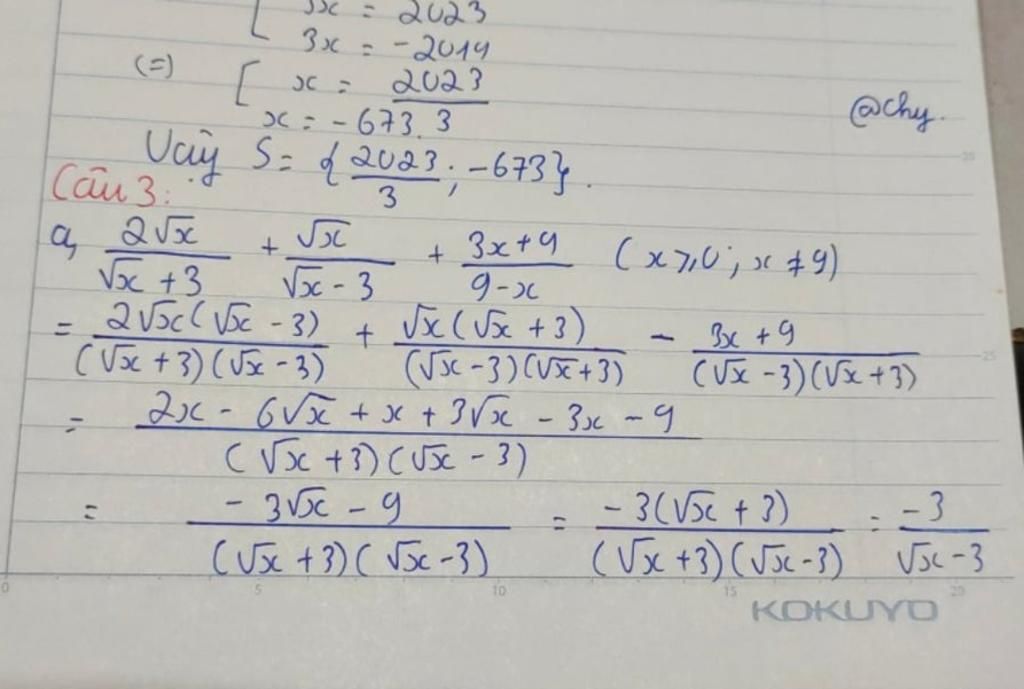 3x = 2023
3x = -2019
(=) [ x = 2023/3
x = -673
@chy.
Vậy S = {2023/3; -673}.
Câu 3:
a, 2√x/(√x + 3) + √x/(√x - 3) + (3x + 9)/(9 - x) (x ⩾ 0; x ≠ 9)
= 2√x(√x - 3)/(√x + 3)(√x - 3) + √x(√x + 3)/(√x - 3)(√x + 3) - (3x + 9)/(√x - 3)(√x + 3)
= (2x - 6√x + x + 3√x - 3x - 9)/(√x + 3)(√x - 3)
= (-3√x - 9)/(√x + 3)(√x - 3) = -3(√x + 3)/(√x + 3)(√x - 3) = -3/(√x - 3)
0 5 10 15 20
KOKUYO